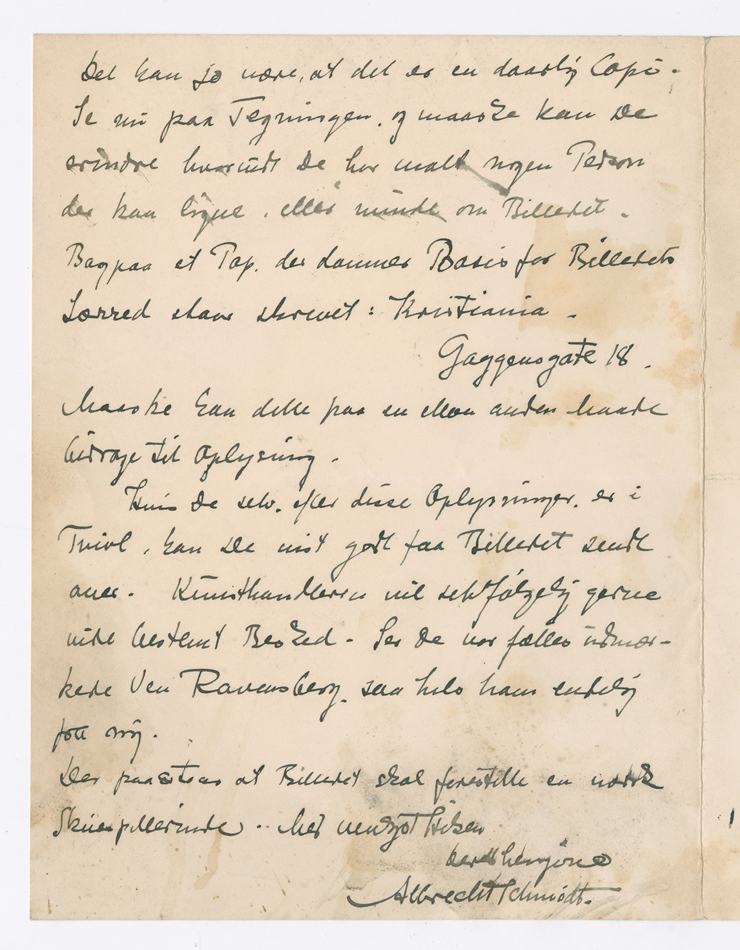 Det kan jo være, at det er en daarlig Copi.
Se nu paa Tegningen, og maaske kan De
erindre hvorvidt De har malt nogen Person
der kan ligne, eller minde om Billedet.
Bagpaa et Pap, der danner Basis for Billedets
Lærred staar skrevet: Kristiania.
Gaggensgate 18.
Maaske kan dette paa en eller anden Maade
bidrage til Oplysning.
Hvis De selv, efter disse Oplysninger, er i
Tvivl, kan De vist godt faa Billedet sendt
over. Kunsthandleren vil selvfølgelig gerne
vide bestemt Besked - Ser De vor fælles udmær-
kede Ven Ravensberg, saa hils ham endelig
fra mig.
Der paastaas at Billedet skal forestille en norsk
Skuespillerinde. Med venligst Hilsen
Deres hengivne
Albrecht Schmidt.